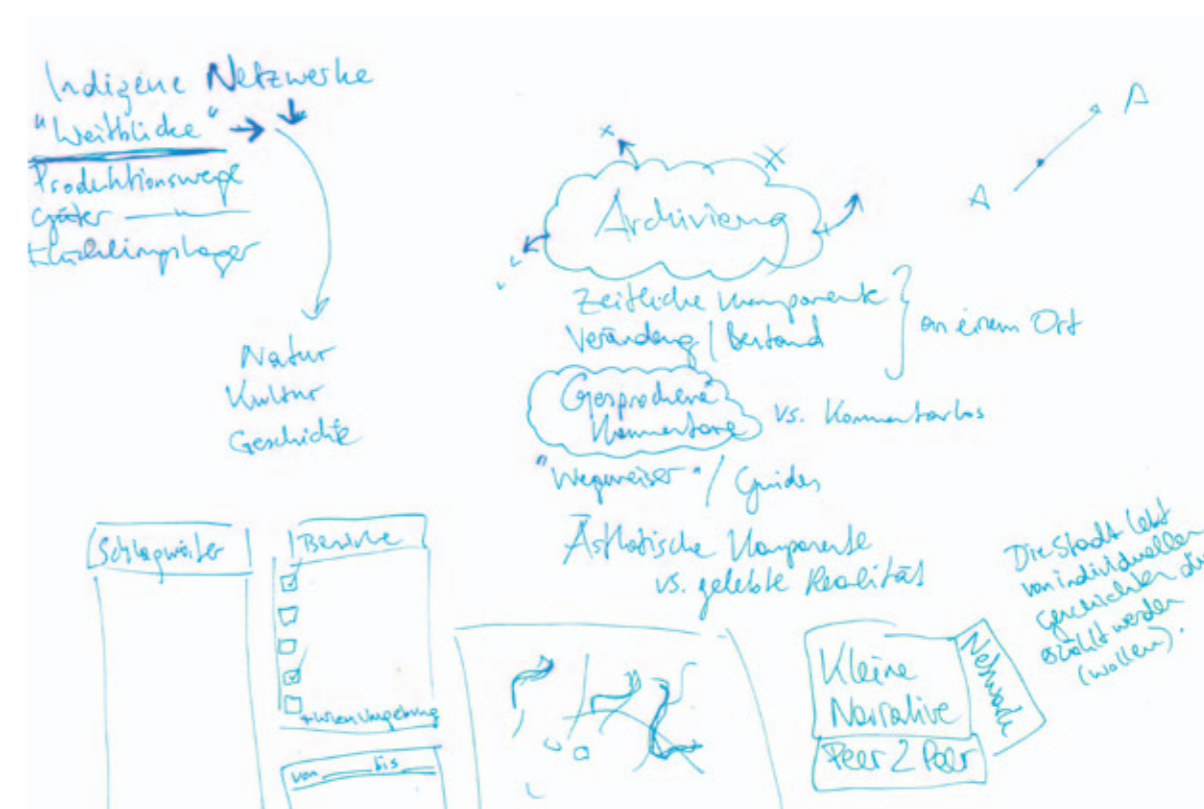 Indigene Netzwerke
"Weitblicke"
Produktionswege
Güter — " —
Flüchtlingslager
Natur
Kultur
Geschichte
A
A
Archivierung
Zeitliche Komponente
Veränderung / Bestand
an einem Ort
Gesprochene
Kommentare
vs. Kommentarlos
"Wegweiser" / Guides
Ästhetische Komponente
vs. gelebte Realität
Schlagwörter
Bezirke
+ Wien Umgebung
von ___ bis ___
Kleine
Narrative
Peer 2 Peer
Netzwerk
Die Stadt lebt
von individuellen
Geschichten die
erzählt werden
(wollen).